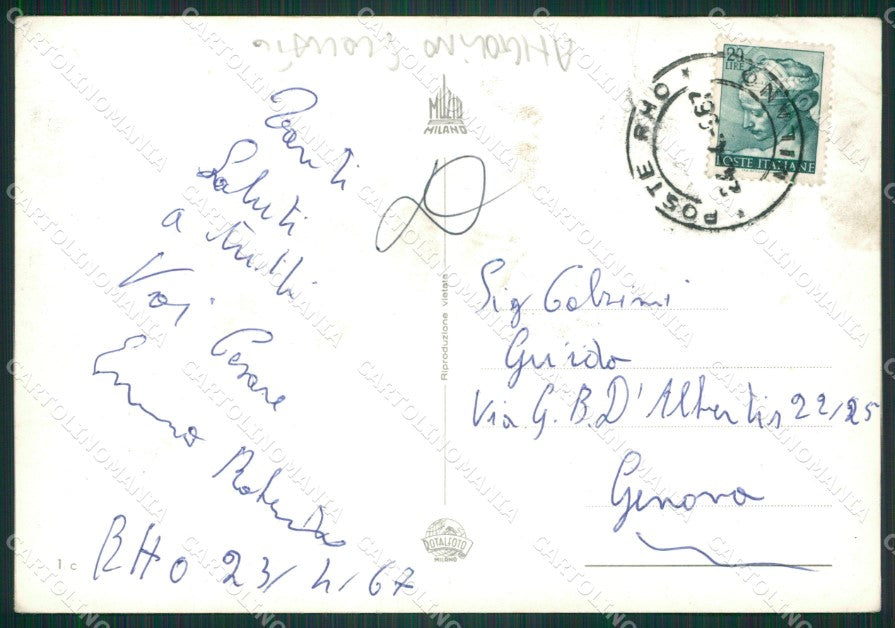 MILANO
Tanti
Saluti
a tutti
Voi
Cesare
RHO 23/4/67
1 c
Riproduzione vietata
ROTALFOTO
MILANO
20
LIRE
POSTE ITALIANE
POSTE RHO * MILANO *
Sig
Guido
Via G.B. D'Albertis 22/25
Genova
CARTOLINOMANIA